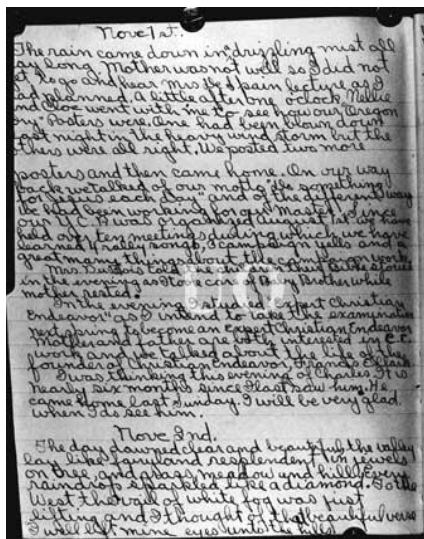 Nov. 1st.
The rain came down in "drizzling mist all
day long. Mother was not well so I did not
get to go and hear Mrs. De Spain lecture as I
had planned. A little after one o'clock, Nellie
and Aloe went with me to see how our Oregon
Dry" Posters were. One had been blown down
last night in the heavy wind storm but the
others were all right. We posted two more
posters and then came home. On our way
back we talked of our motto "Do something
for Jesus each day" and of the different way
we had been working for our "Master" since
our Y.C. was organized August 1st. We have
held over ten meetings during which we have
learned 4 rally songs, 3 campaign yells and a
great many things about the campaign work.
Mrs. told the children their Bible stories
in the evening as I took care of Baby Brother while
mother rested.
In the evening I studied "Expert Christian
Endeavor" as I intend to take the examination
next spring to become an Expert Christian Endeavor
Mother and father are both interested in C.E.
work and we talked about the life of the
founder of Christian Endeavor, Francis Clark.
I was thinking this evening of Charles. It is
nearly six months since I last saw him. He
came home last Sunday. I will be very glad
when I do see him.
Nov. 2nd.
The day dawned clear and beautiful, the valley
lay like fairyland resplendent with jewels
on tree, and grass, meadow and hill. Every
raindrop sparkled like a diamond. To the
West the veil of white fog was just
lifting and I thought of that beautiful verse
"I will lift mine eyes unto the hills